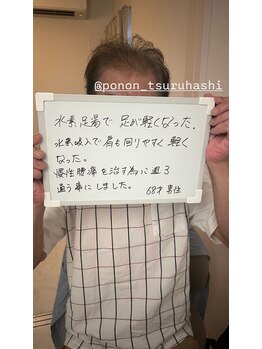 @ponon_tsuruhashi
水素足湯で足が軽くなった。
水素吸入で肩も回りやすく軽く
なった。
慢性腰痛を治す為に週3
通う事にしました。
68才 男性